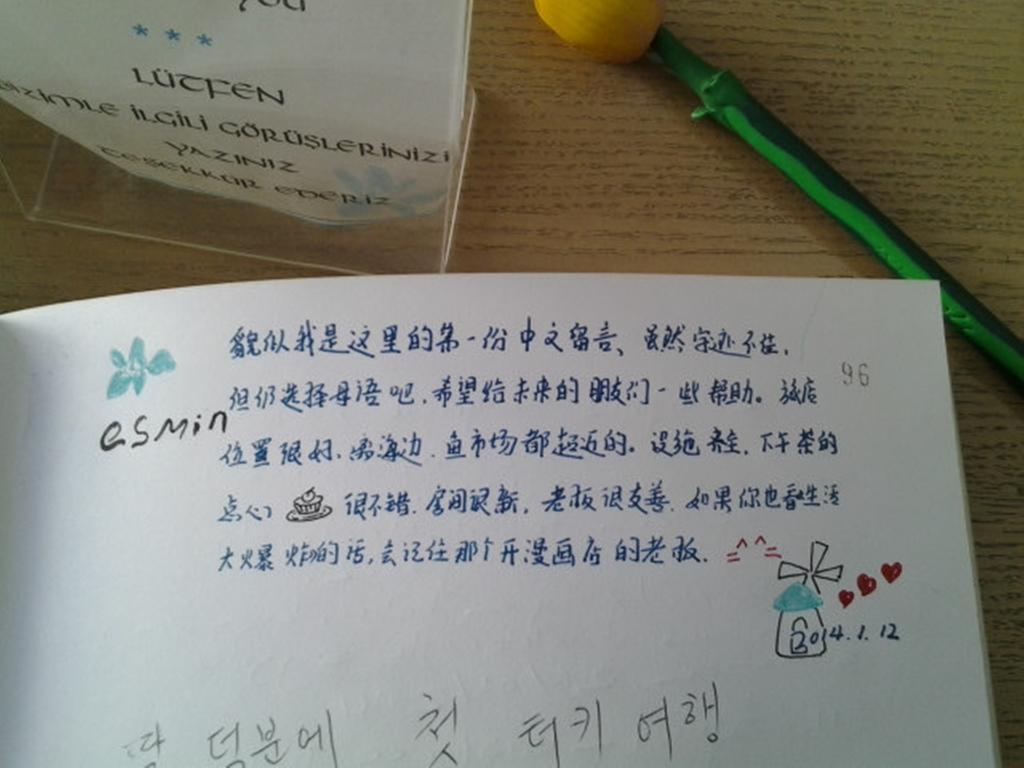 you
* * *
LÜTFEN
BİZİMLE İLGİLİ GÖRÜŞLERİNİZİ
YAZINIZ
TEŞEKKÜR EDERİZ
貌似我是这里的第一份中文留言、虽然字迹不佳,
96
但仍选择母语吧,希望给未来的朋友们一些帮助。旅店
esmin
位置很好、离海边、鱼市场都超近的。设施齐全,下午茶的
点心 很不错.房间很新,老板很友善.如果你也看生活
大爆炸的话,会记住那个开漫画店的老板. =^^=
2014.1.12
덕분에 첫 터키 여행